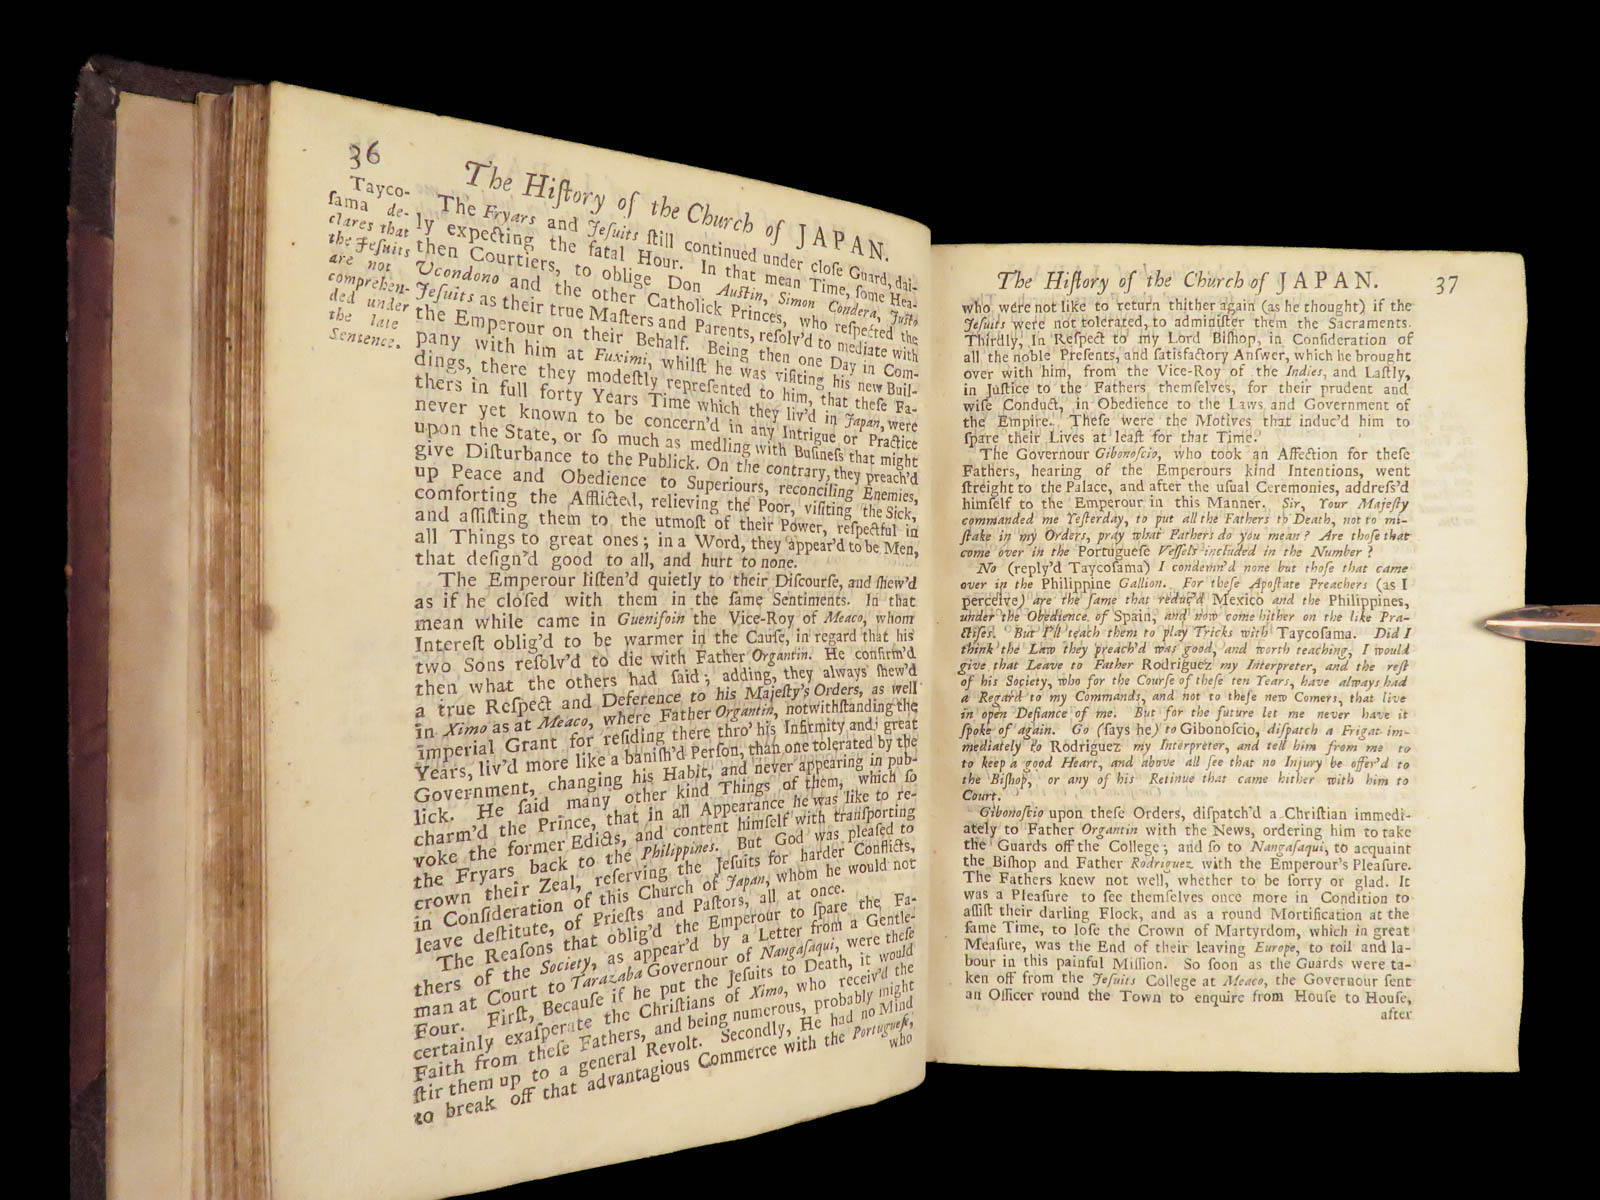 36
The Hiſtory of the Church of JAPAN.
Tayco-
ſama de-
clares that
the Jeſuits
are not
comprehen-
ded under
the late
Sentence.
The Fryars and Jeſuits ſtill continued under cloſe Guard, dai-
ly expecting the fatal Hour. In that mean Time, ſome Hea-
then Courtiers, to oblige Don Auſtin, Simon Condera, Juſto
Ucondono and the other Catholick Princes, who reſpected the
Jeſuits as their true Maſters and Parents, reſolv'd to mediate with
the Emperour on their Behalf. Being then one Day in Com-
pany with him at Fuximi, whilſt he was viſiting his new Buil-
dings, there they modeſtly repreſented to him, that theſe Fa-
thers in full forty Years Time which they liv'd in Japan, were
never yet known to be concern'd in any Intrigue or Practice
upon the State, or ſo much as medling with Buſineſs that might
give Diſturbance to the Publick. On the contrary, they preach'd
up Peace and Obedience to Superiours, reconciling Enemies,
comforting the Afflicted, relieving the Poor, viſiting the Sick,
and aſſiſting them to the utmoſt of their Power, reſpectful in
all Things to great ones; in a Word, they appear'd to be Men,
that deſign'd good to all, and hurt to none.
The Emperour liſten'd quietly to their Diſcourſe, and ſhew'd
as if he cloſed with them in the ſame Sentiments. In that
mean while came in Gueniſoin the Vice-Roy of Meaco, whom
Intereſt oblig'd to be warmer in the Cauſe, in regard that his
two Sons reſolv'd to die with Father Organtin. He confirm'd
then what the others had ſaid; adding, they always ſhew'd
a true Reſpect and Deference to his Majeſty's Orders, as well
in Ximo as at Meaco, where Father Organtin, notwithſtanding the
imperial Grant for reſiding there thro' his Infirmity and great
Years, liv'd more like a baniſh'd Perſon, than one tolerated by the
Government, changing his Habit, and never appearing in pub-
lick. He ſaid many other kind Things of them, which ſo
charm'd the Prince, that in all Appearance he was like to re-
voke the former Edicts, and content himſelf with tranſporting
the Fryars back to the Philippines. But God was pleaſed to
crown their Zeal, reſerving the Jeſuits for harder Conflicts,
in Conſideration of this Church of Japan, whom he would not
leave deſtitute, of Prieſts and Paſtors, all at once.
The Reaſons that oblig'd the Emperour to ſpare the Fa-
thers of the Society, as appear'd by a Letter from a Gentle-
man at Court to Tarazaba Governour of Nangaſaqui, were theſe
Four. Firſt, Becauſe if he put the Jeſuits to Death, it would
certainly exaſperate the Chriſtians of Ximo, who receiv'd the
Faith from theſe Fathers, and being numerous, probably might
ſtir them up to a general Revolt. Secondly, He had no Mind
to break off that advantagious Commerce with the Portugueſe,
who
The Hiſtory of the Church of JAPAN. 37
who were not like to return thither again (as he thought) if the
Jeſuits were not tolerated, to adminiſter them the Sacraments.
Thirdly, In Reſpect to my Lord Biſhop, in Conſideration of
all the noble Preſents, and ſatisfactory Anſwer, which he brought
over with him, from the Vice-Roy of the Indies, and Laſtly,
in Juſtice to the Fathers themſelves, for their prudent and
wiſe Conduct, in Obedience to the Laws and Government of
the Empire. Theſe were the Motives that induc'd him to
ſpare their Lives at leaſt for that Time.
The Governour Gibonoſcio, who took an Affection for theſe
Fathers, hearing of the Emperours kind Intentions, went
ſtreight to the Palace, and after the uſual Ceremonies, addreſs'd
himſelf to the Emperour in this Manner. Sir, Your Majeſty
commanded me Yeſterday, to put all the Fathers to Death, not to mi-
ſtake in my Orders, pray what Fathers do you mean? Are thoſe that
come over in the Portugueſe Veſſels included in the Number?
No (reply'd Taycoſama) I condemn'd none but thoſe that came
over in the Philippine Gallion. For theſe Apoſtate Preachers (as I
perceive) are the ſame that reduc'd Mexico and the Philippines,
under the Obedience of Spain, and now come hither on the like Pra-
ctiſes. But I'll teach them to play Tricks with Taycoſama. Did I
think the Law they preach'd was good, and worth teaching, I would
give that Leave to Father Rodriguez my Interpreter, and the reſt
of his Society, who for the Courſe of theſe ten Years, have always had
a Regard to my Commands, and not to theſe new Comers, that live
in open Defiance of me. But for the future let me never have it
ſpoke of again. Go (ſays he) to Gibonoſcio, diſpatch a Frigat im-
mediately to Rodriguez my Interpreter, and tell him from me to
to keep a good Heart, and above all ſee that no Injury be offer'd to
the Biſhop, or any of his Retinue that came hither with him to
Court.
Gibonoſcio upon theſe Orders, diſpatch'd a Chriſtian immedi-
ately to Father Organtin with the News, ordering him to take
the Guards off the College; and ſo to Nangaſaqui, to acquaint
the Biſhop and Father Rodriguez with the Emperour's Pleaſure.
The Fathers knew not well, whether to be ſorry or glad. It
was a Pleaſure to ſee themſelves once more in Condition to
aſſiſt their darling Flock, and as a round Mortification at the
ſame Time, to loſe the Crown of Martyrdom, which in great
Meaſure, was the End of their leaving Europe, to toil and la-
bour in this painful Miſſion. So ſoon as the Guards were ta-
ken off from the Jeſuits College at Meaco, the Governour ſent
an Officer round the Town to enquire from Houſe to Houſe,
after